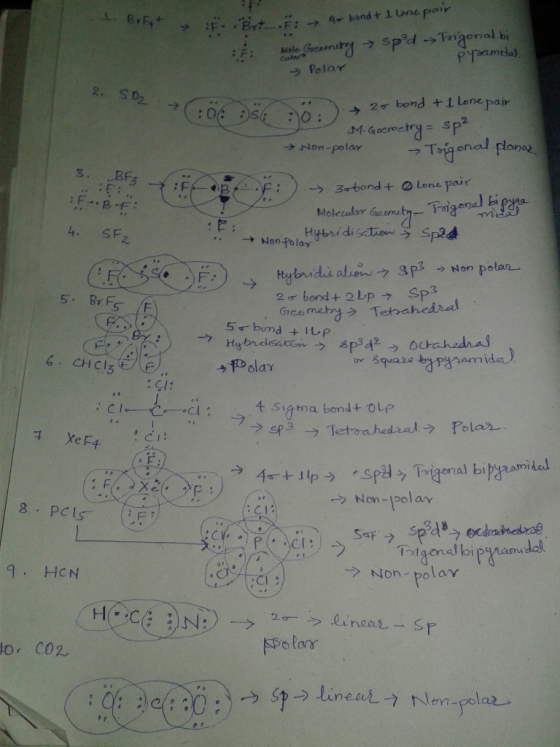 :F:
1. BrF4+ → :F — Br+ — F: → 4σ bond + 1 lone pair
:F:
Molecular Geometry → sp3d → Trigonal bi pyramidal
→ Polar
2. SO2 → :O: :S: O: → 2σ bond + 1 lone pair
M. Geometry = sp2
→ Non-polar → Trigonal planar
3. BF3 → :F — B — F: → 3σ bond + 0 lone pair
:F:
:F — B — F:
Molecular Geometry — Trigonal bipyramidal
:F:
→ Nonpolar Hybridisation → Sp2
4. SF2
:F: S: F: → Hybridisation → Sp3 → Non polar
2σ bond + 2lp → Sp3
Geometry → Tetrahedral
5. BrF5
F F Br F F F → 5σ bond + 1lp
Hybridisation → sp3d2 → Octahedral
or Square bypyramidal
→ Polar
6. CHCl3
:Cl:
:Cl — C — Cl: → 4 Sigma bond + 0lp
:Cl:
→ sp3 → Tetrahedral → Polar
7 XeF4
F
:F Xe F: → 4σ + 1lp → Sp3d → Trigonal bipyramidal
F
→ Non-polar
8. PCl5 → Cl Cl P Cl Cl Cl → 5σ Sp3d →
Trigonal bipyramidal
→ Non-polar
9. HCN
H C N: → 2σ → linear – Sp
Polar
10. CO2
:O: C :O: → Sp → linear → Non-polar